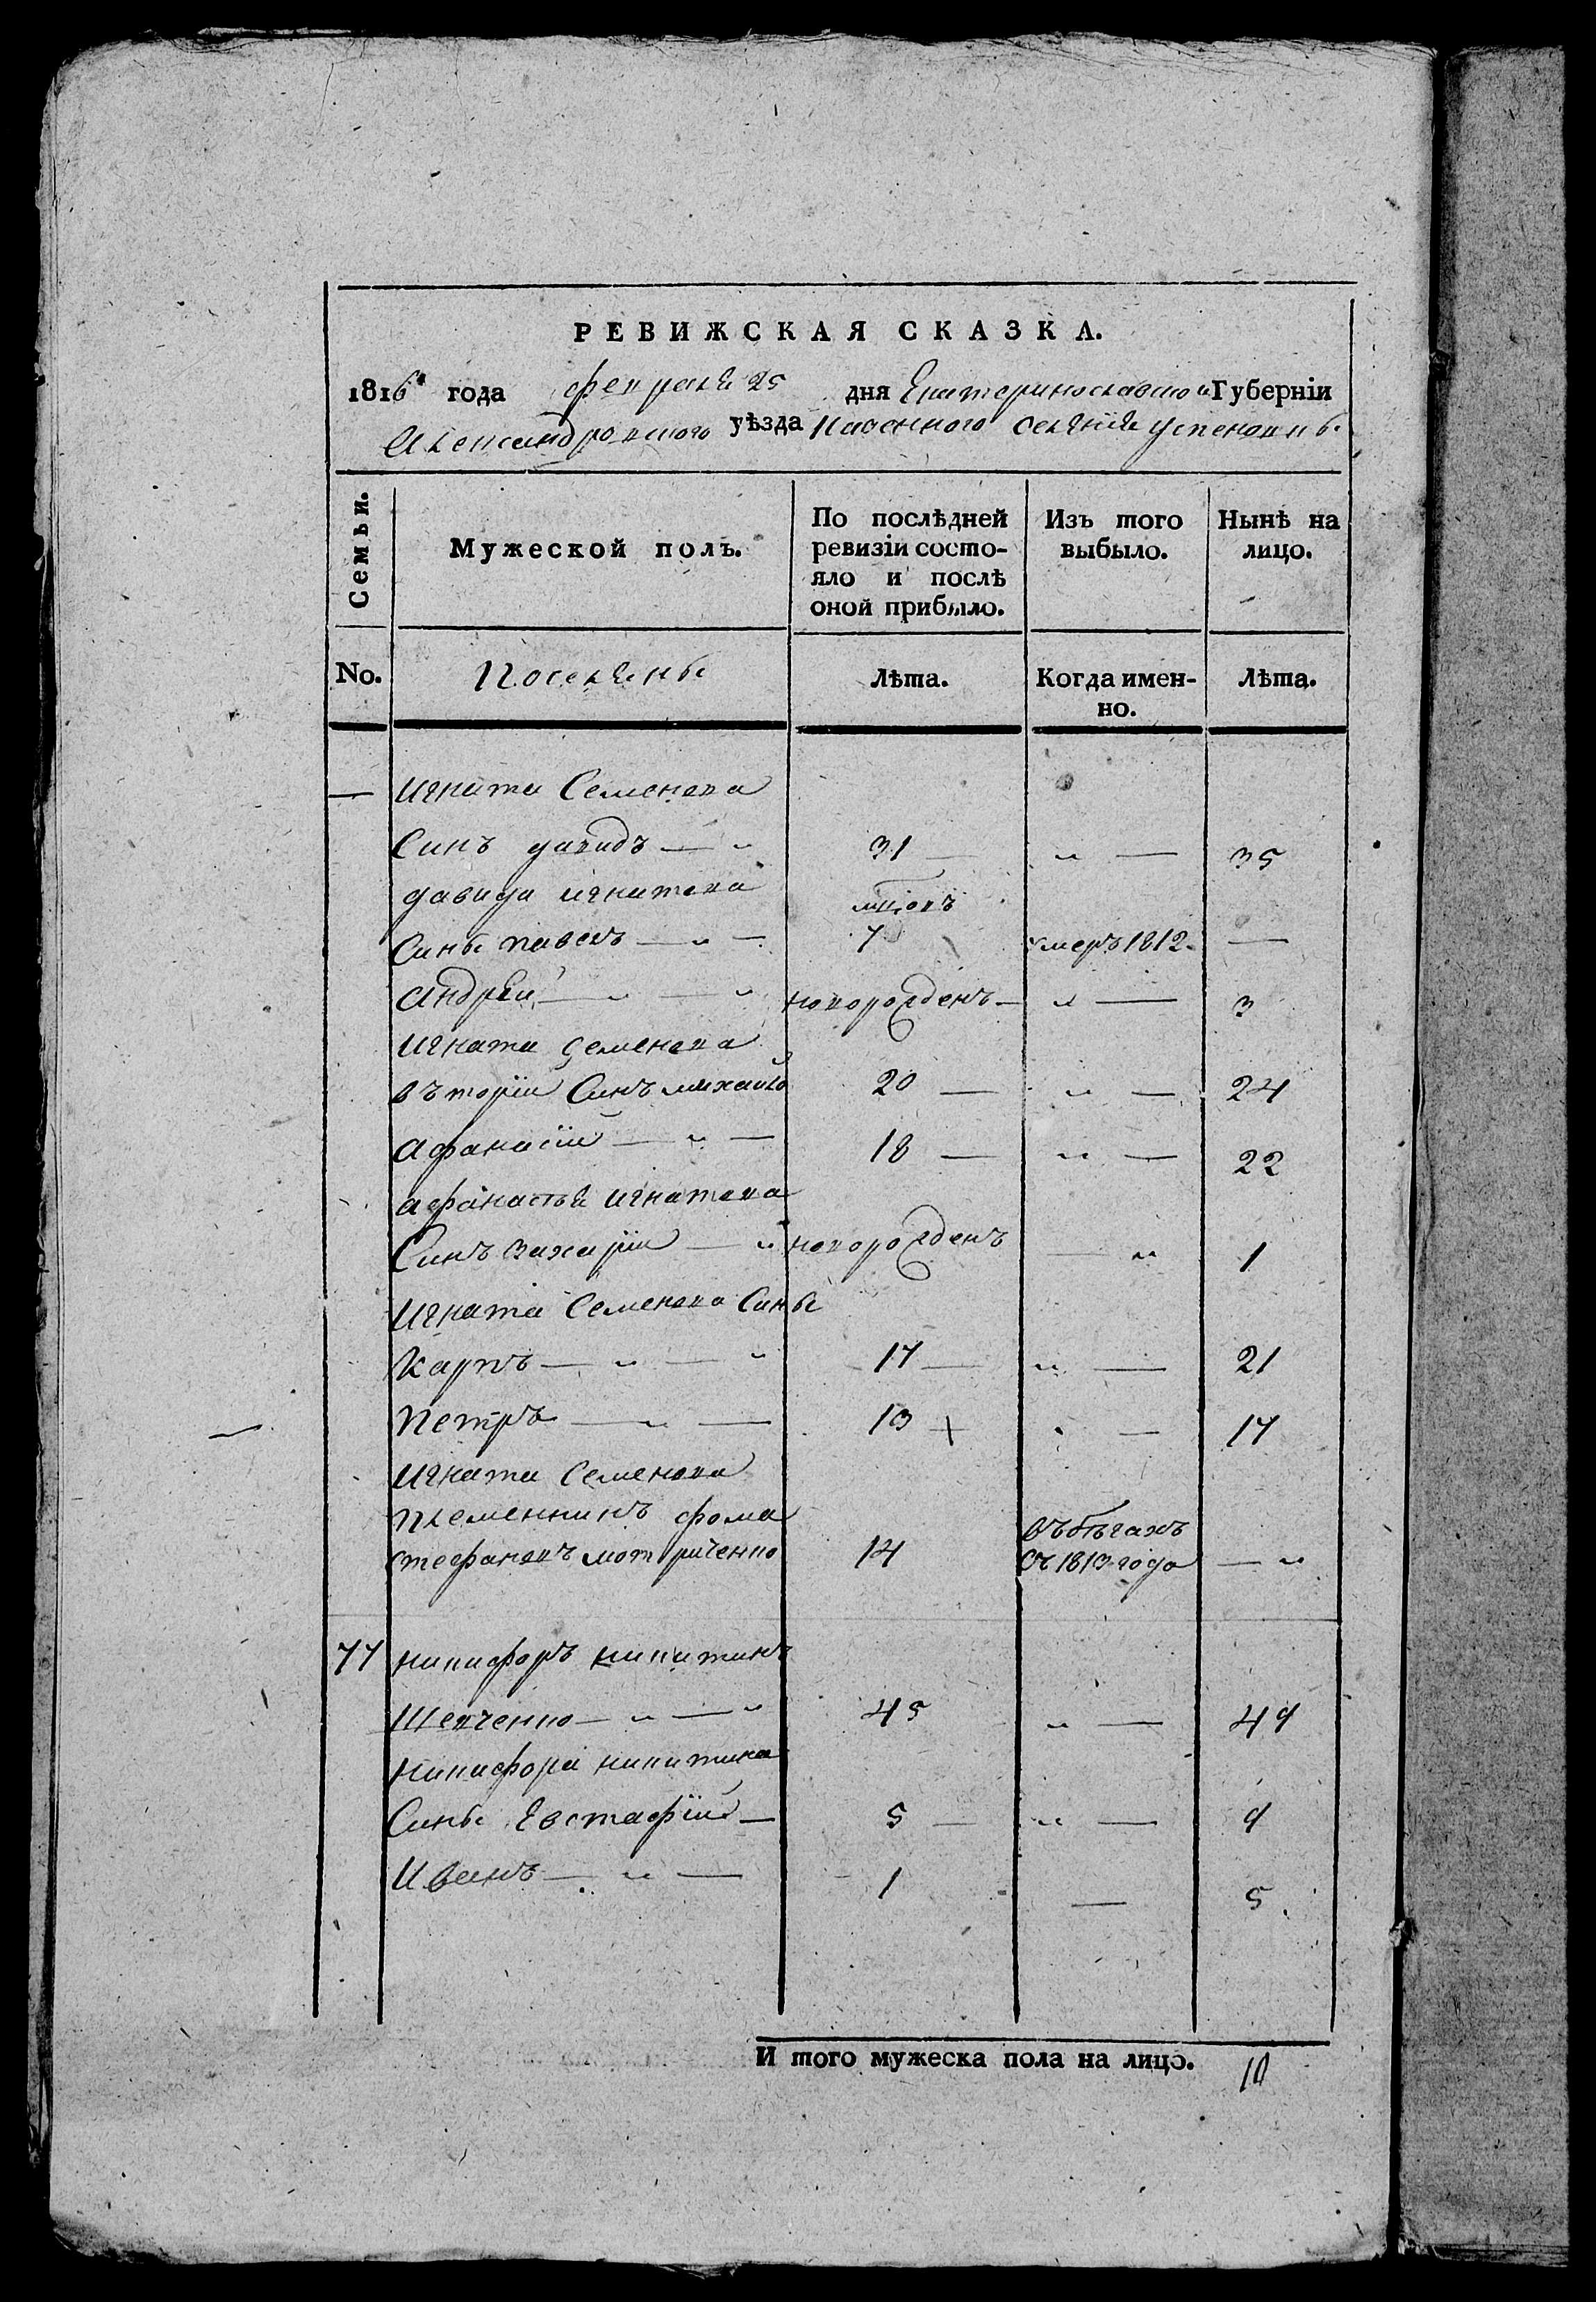 РЕВИЖСКАЯ СКАЗКА.
1816 года февраля 25 дня Екатеринославской Губерніи
Александровского уѣзда казенного селенія успеновки
Семьи. Мужеской полъ. По послѣдней ревизіи состояло и послѣ оной прибыло. Изъ того выбыло. Нынѣ на лицо.
No. Поселяны Лѣта. Когда именно. Лѣта.
— игната Семенова
Синъ давидъ — „ 31 — „ — 35
давида игнатова
Сины павелъ — „ — 7 умеръ 1812. —
андрей — „ — „ новорожденъ — „ — 3
игната Семенова
въторій Синъ михайло 20 — „ — 24
афанасій — „ — 18 — „ — 22
афанасья игнатова
Синъ захарій — „ новорожденъ — „ 1
игната Семенова Сины
карпъ — „ — „ 17 — „ — 21
петръ — „ — 13 + — 17
игната Семенова
племенникъ фома въ бѣгахъ
стефановъ мотриченко 14 съ 1813 года — „
77 никифоръ никитинъ
Шевченко — „ — „ 45 „ — 49
никифора никитина
Сины Евстафій — 5 — „ — 9
Иванъ — „ — 1 — 5
И того мужеска пола на лицо. 10